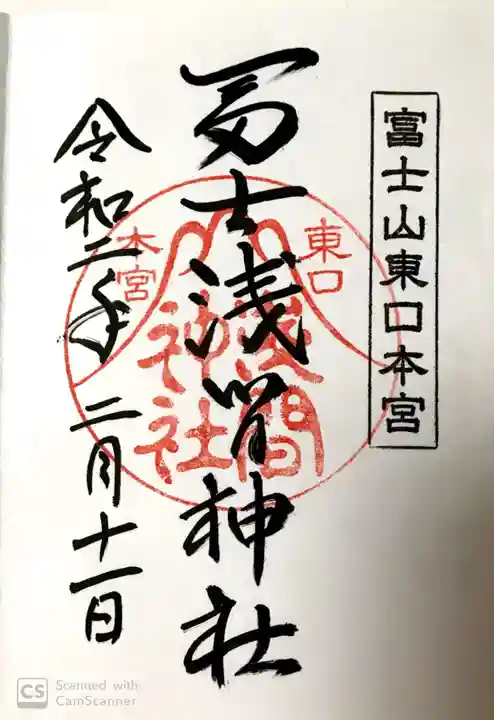 富士山東口本宮
冨士浅间神社
東口
本宮
浅間
神社
令和二年二月十一日
CS Scanned with
CamScanner